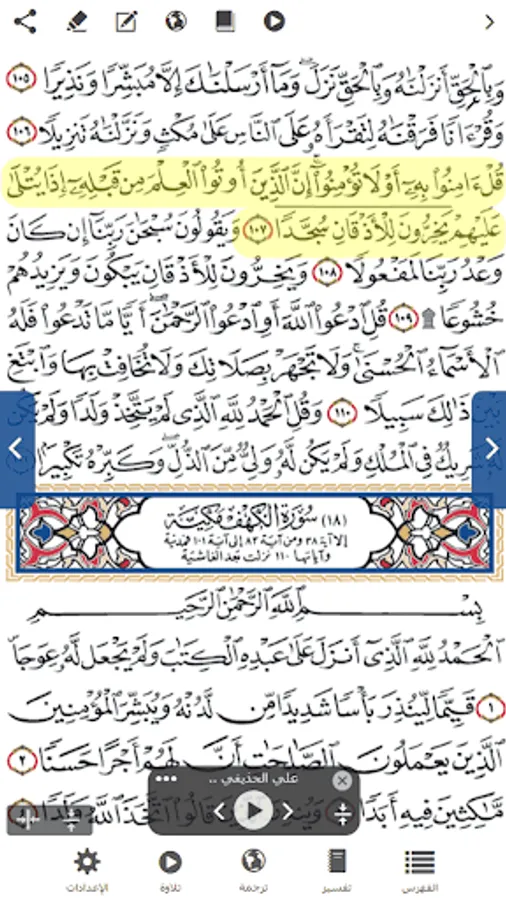 وَبِالْحَقِّ أَنزَلْنَاهُ وَبِالْحَقِّ نَزَلَ ۗ وَمَا أَرْسَلْنَاكَ إِلَّا مُبَشِّرًا وَنَذِيرًا ١٠٥
وَقُرْءَانًا فَرَقْنَاهُ لِتَقْرَأَهُ عَلَى النَّاسِ عَلَىٰ مُكْثٍ وَنَزَّلْنَاهُ تَنزِيلًا ١٠٦
قُلْ ءَامِنُوا بِهِ أَوْ لَا تُؤْمِنُوا ۚ إِنَّ الَّذِينَ أُوتُوا الْعِلْمَ مِن قَبْلِهِ إِذَا يُتْلَىٰ
عَلَيْهِمْ يَخِرُّونَ لِلْأَذْقَانِ سُجَّدًا ١٠٧ وَيَقُولُونَ سُبْحَٰنَ رَبِّنَا إِن كَانَ
وَعْدُ رَبِّنَا لَمَفْعُولًا ١٠٨ وَيَخِرُّونَ لِلْأَذْقَانِ يَبْكُونَ وَيَزِيدُهُمْ
خُشُوعًا ۩ ١٠٩ قُلِ ادْعُوا اللَّهَ أَوِ ادْعُوا الرَّحْمَٰنَ ۖ أَيًّا مَّا تَدْعُوا فَلَهُ
الْأَسْمَاءُ الْحُسْنَىٰ ۚ وَلَا تَجْهَرْ بِصَلَاتِكَ وَلَا تُخَافِتْ بِهَا وَابْتَغِ
بَيْنَ ذَٰلِكَ سَبِيلًا ١١٠ وَقُلِ الْحَمْدُ لِلَّهِ الَّذِي لَمْ يَتَّخِذْ وَلَدًا وَلَمْ يَكُن
لَّهُ شَرِيكٌ فِي الْمُلْكِ وَلَمْ يَكُن لَّهُ وَلِيٌّ مِّنَ الذُّلِّ ۖ وَكَبِّرْهُ تَكْبِيرًا
(١٨) سُورَةُ الْكَهْفِ مَكِّيَّة
إلا آية ٣٨ ومن آية ٨٣ إلى آية ١٠١ فمدنية
وآياتها ١١٠ نزلت بعد الغاشية
بِسْمِ اللَّهِ الرَّحْمَٰنِ الرَّحِيمِ
الْحَمْدُ لِلَّهِ الَّذِي أَنزَلَ عَلَىٰ عَبْدِهِ الْكِتَٰبَ وَلَمْ يَجْعَل لَّهُ عِوَجًا
١ قَيِّمًا لِّيُنذِرَ بَأْسًا شَدِيدًا مِّن لَّدُنْهُ وَيُبَشِّرَ الْمُؤْمِنِينَ
الَّذِينَ يَعْمَلُونَ الصَّالِحَاتِ أَنَّ لَهُمْ أَجْرًا حَسَنًا ٢
علي الحذيفي ..
مَّاكِثِينَ فِيهِ أَبَدًا قَالُوا اتَّخَذَ اللَّهُ وَلَدًا
الفهرس
تفسير
ترجمة
تلاوة
الإعدادات